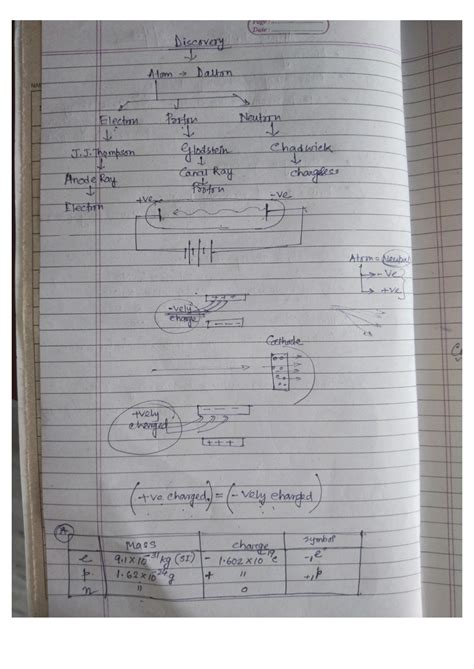 Date :
Discovery
Atom → Dalton
Electron Proton Neutron
J.J. Thompson Glodstein Chadwick
Anode Ray Canal Ray chargless
Electron Proton
+ve -ve
Atom = Neutral
-ve
+ve
-vely
charge
+ + +
- - -
Cathode
+vely
charged
- - -
+++
(+ve charged) = (-vely charged)
A
Mass charge symbol
e 9.1×10⁻³¹ kg (SI) - 1.602×10⁻¹⁹ c ₋₁e°
p 1.62×10⁻²⁴ g + " ₊₁p
n " 0